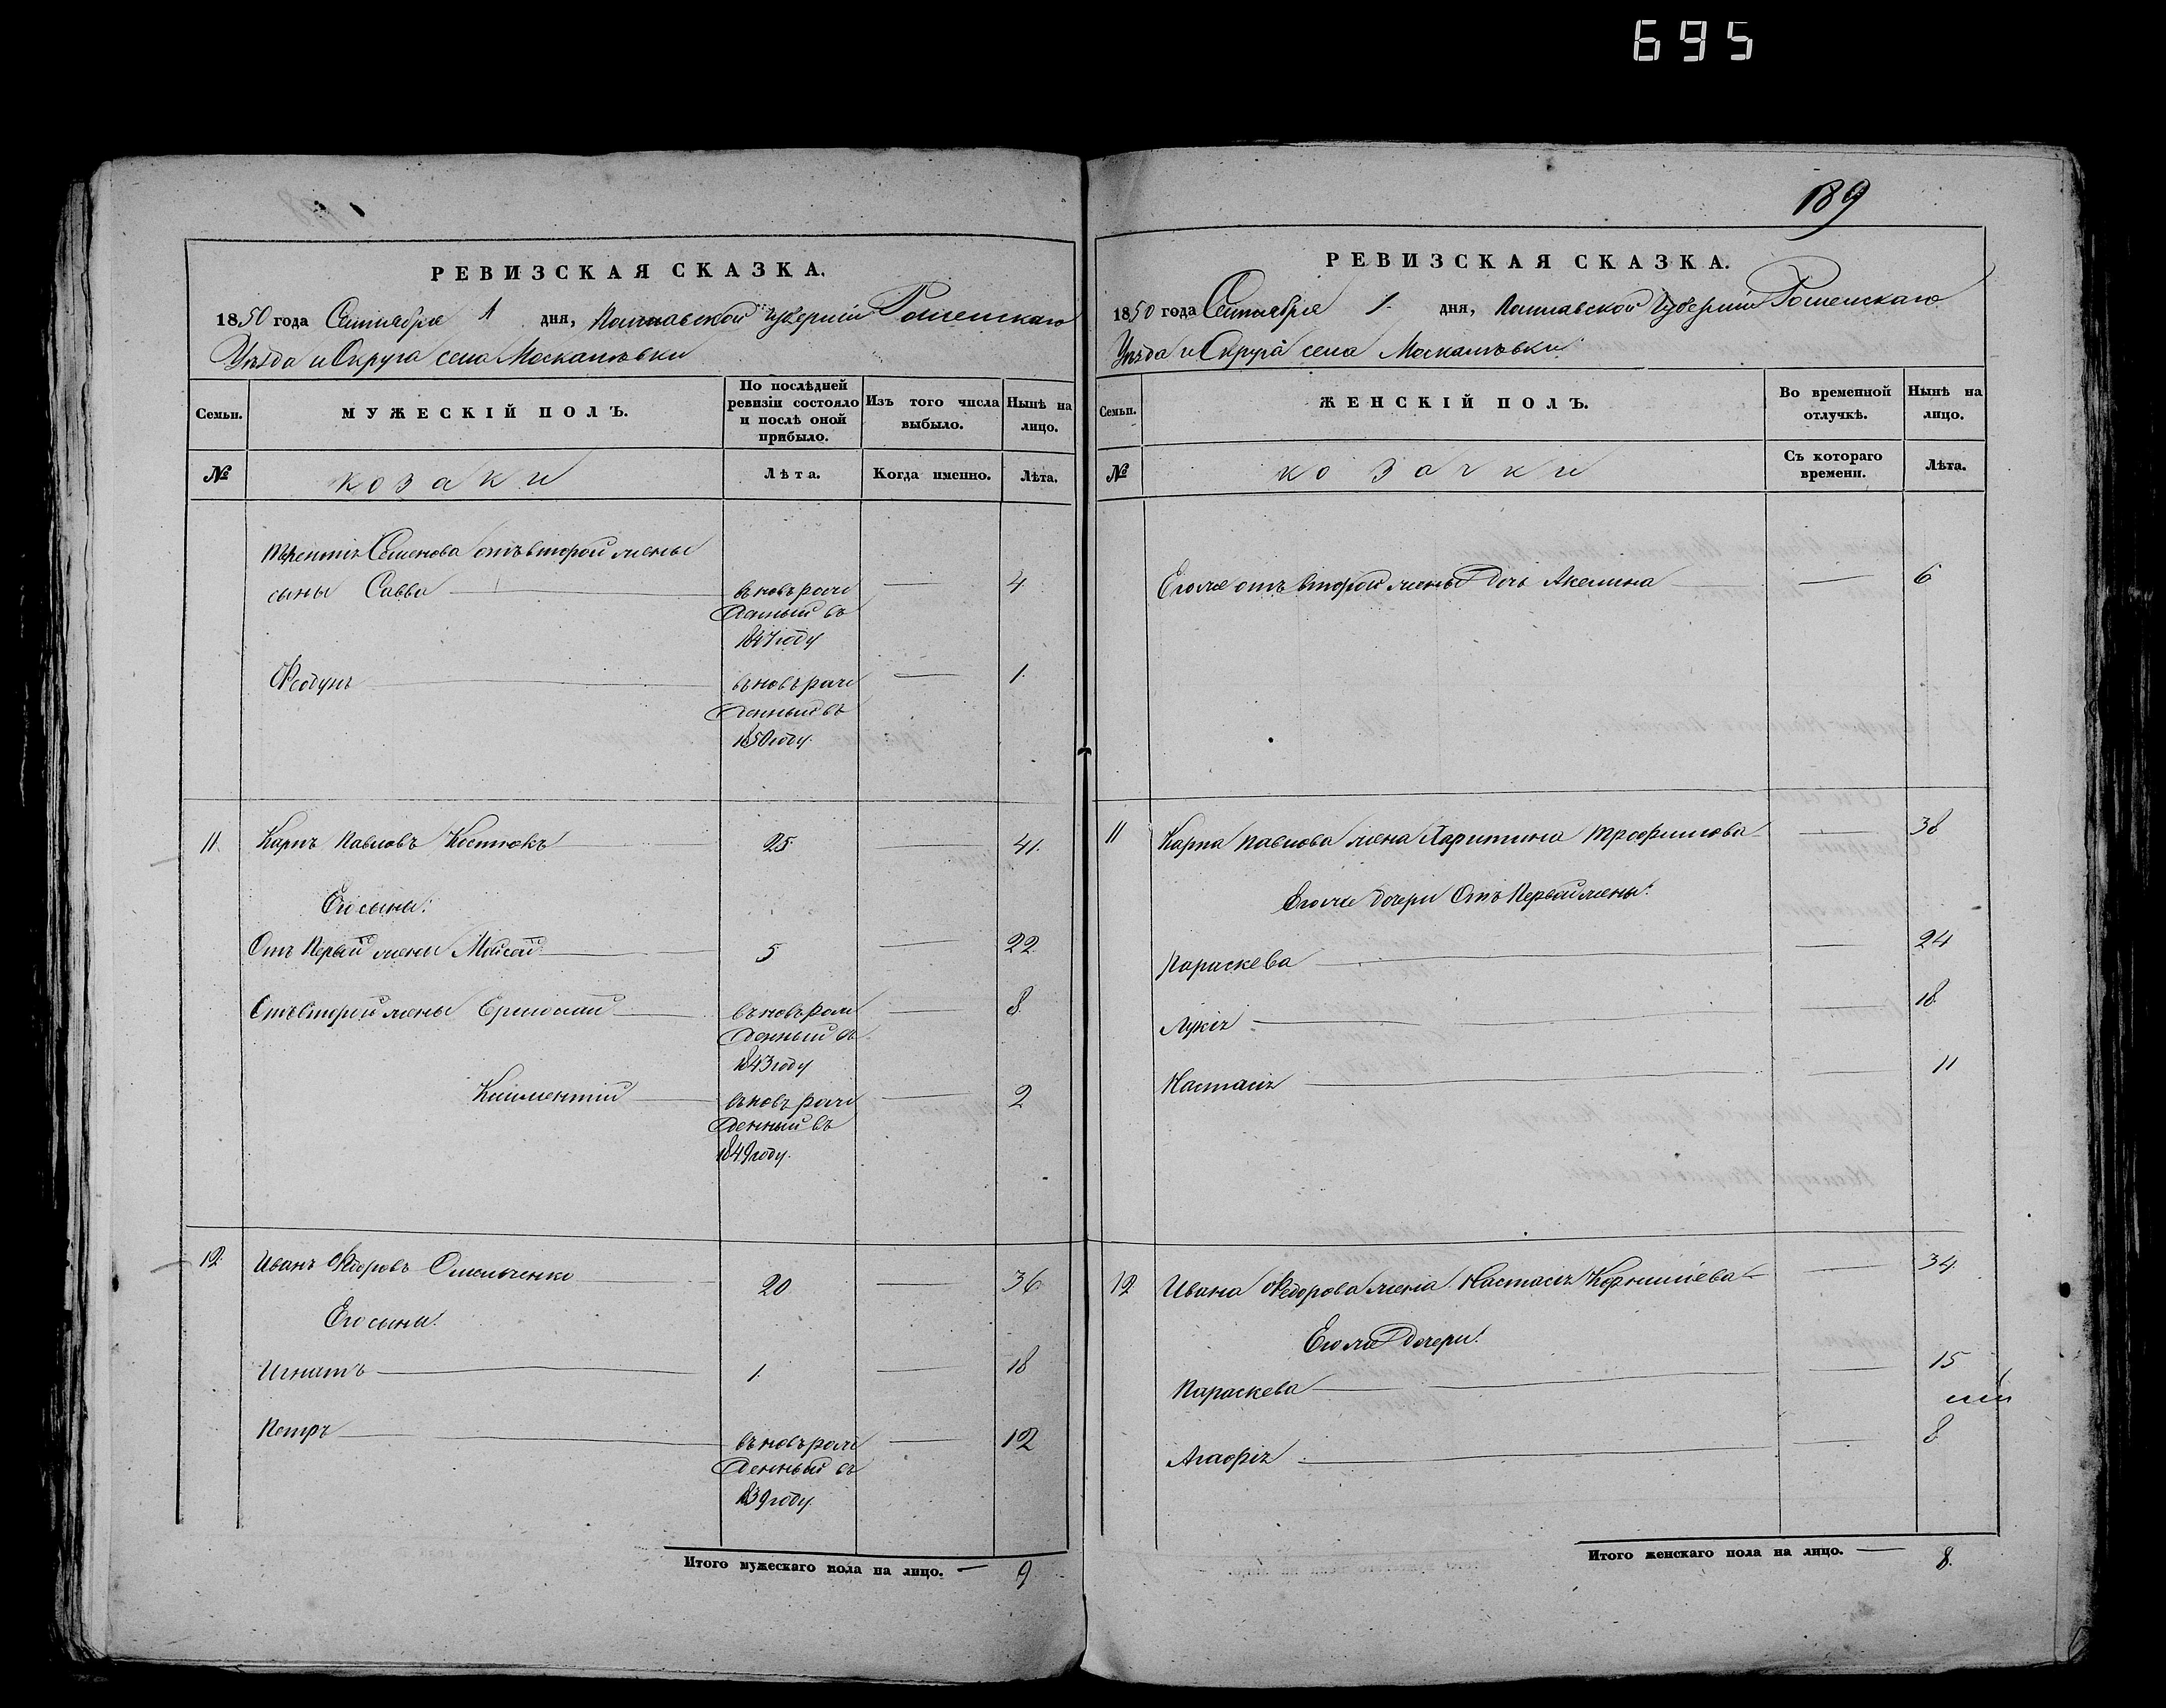 695
РЕВИЗСКАЯ СКАЗКА.
1850 года Сентября 1 дня, Полтавской губернии Роменскаго
Уѣзда и Округа села Москалѣвки
Семьи.
МУЖЕСКІЙ ПОЛЪ.
По послѣдней ревизіи состояло и послѣ оной прибыло.
Изъ того числа выбыло.
Нынѣ на лицо.
№
козаки
Лѣта.
Когда именно.
Лѣта.
Терентія Семенова отъ второй жены
сыны Савва вновь рож 4
денный въ
1847 году
Федунъ вновь рож 1.
денный въ
1850 году.
11. Карпъ Павловъ Костюкъ 25. 41.
Его сыны:
Отъ Первой жены Моисей 5 22.
Отъ второй жены Ермолай вновь рож 8.
денный въ
1843 году
Климентій вновь рож 2
денный въ
1849 году.
12. Иванъ Федоровъ Омельченко 20 36.
Его сыны:
Игнатъ 1. 18
Петръ вновь рож 12
денный въ
1839 году.
Итого мужескаго пола на лицо. 9
189
РЕВИЗСКАЯ СКАЗКА.
1850 года Сентября 1. дня, Полтавской Губерніи Роменскаго
Уѣзда и Округа села Москалѣвки
Семьи.
ЖЕНСКІЙ ПОЛЪ.
Во временной отлучкѣ.
Нынѣ на лицо.
№
козачки
Съ котораго времени.
Лѣта.
Его же отъ второй жены Дочь Акелина 6
11 Карпа Павлова жена Харитина Трофимова 38
Его же дочери Отъ Первой жены:
Параскева 24
Лукія 18
Настасія 11
12 Ивана Федорова жена Настасія Корнилиева 34.
Его же Дочери:
Параскева 15
Агафія 8
Итого женскаго пола на лицо. 8.